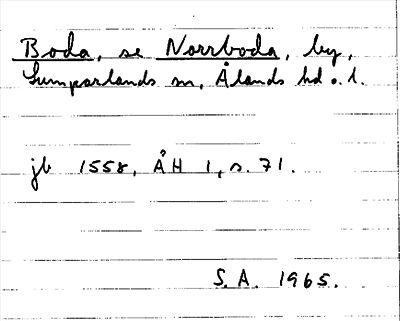 Boda, se Norrboda, by,
Lumparlands sn, Ålands hd o. l.
jb 1558, ÅH 1, s. 71.
S.A. 1965.